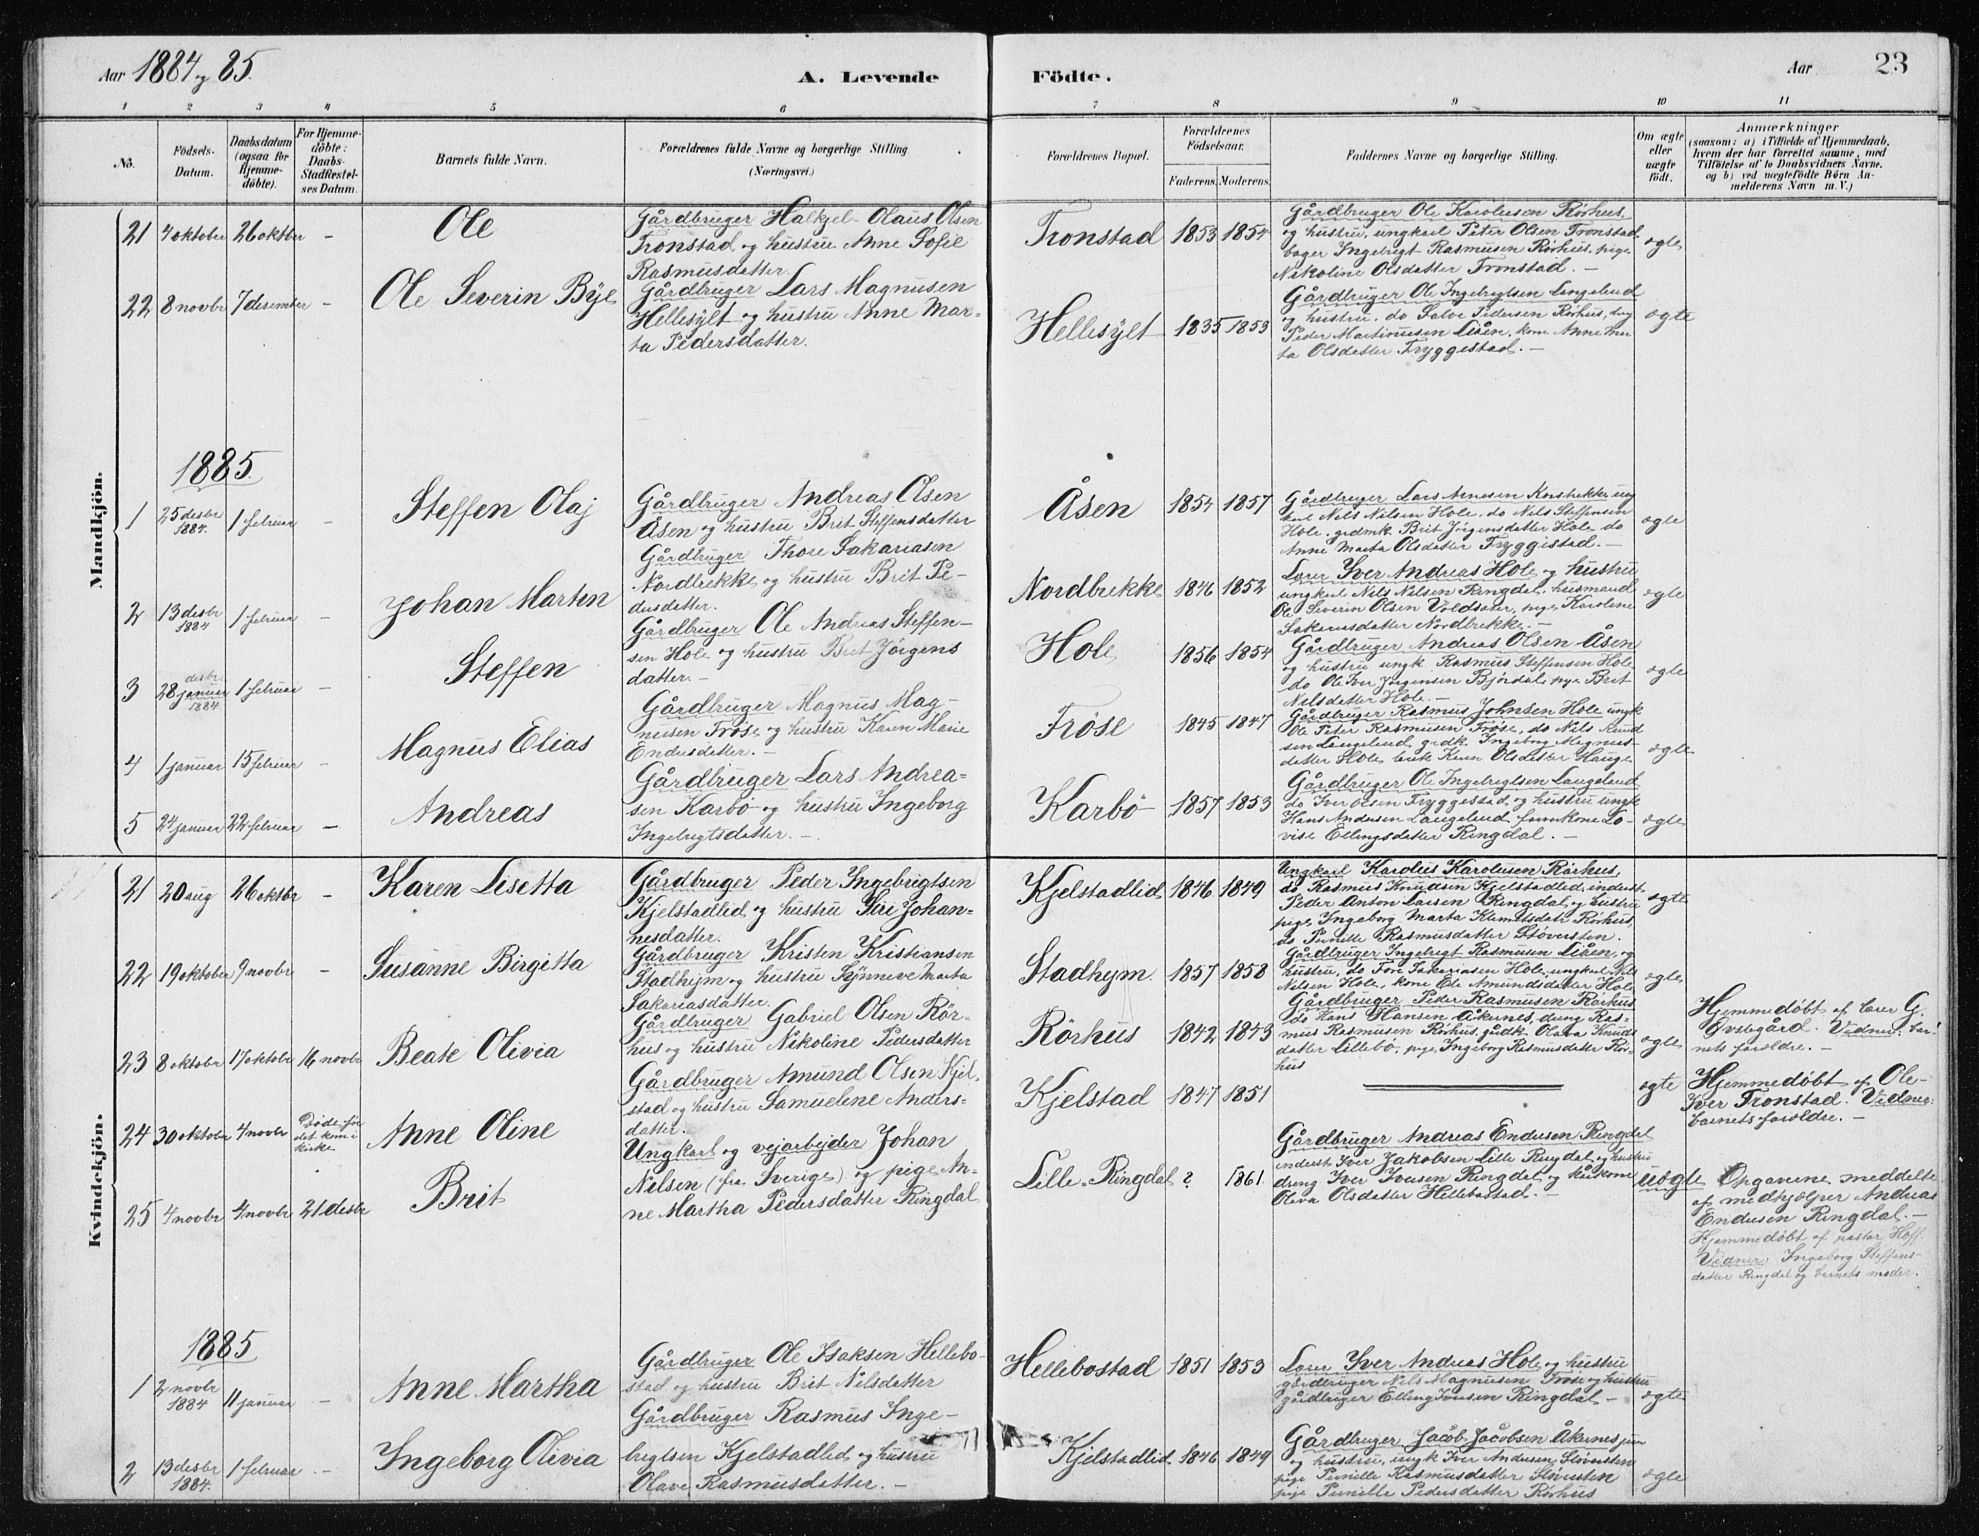 Aar 1884 og 85.
A. Levende
Födte.
Aar
23
1 2 3 4 5 6 7 8 9 10 11
No.
Födsels-
Datum.
Daabsdatum
(ogsaa for
Hjemme-
döbte).
For Hjemme-
döbte:
Daabs-
Stadfæstel-
ses Datum.
Barnets fulde Navn.
Forældrenes fulde Navne og borgerlige Stilling
(Næringsvei.)
Forældrenes Bopæl.
Forældrenes
Födselsaar.
Faderens. Moderens.
Faddernes Navne og borgerlige Stilling.
Om ægte
eller
uægte
födt.
Anmærkninger
(saasom: a) i Tilfælde af Hjemmedaab,
hvem der har forrettet samme, med
Tilföielse af to Daabsvidners Navne,
og b) ved uægtefödte Börn An-
melderens Navn m. V.)
Mandkjön.
21 4 oktober 26 oktbr - Ole
Gårdbruger Halkjel-Olaus Olsen
Tronstad og hustru Anne Sofie
Rasmusdatter.
Tronstad 1853 1854
Gårdbruger Ole Karolusen Rörhus,
og hustru, ungkarl Peter Olsen Tronstad
bager Ingebrigt Rasmusen Rörhus, pige
Nikoline Olsdatter Tronstad. -
ægte
22 8 novbr 7 desember - Ole Severin Byl
Gårdbruger Lars Magnusen
Hellesylt og hustru Anne Mar-
ta Pedersdatter.
Hellesylt 1835 1853
Gårdbruger Ole Ingebrigtsen Langelund
og hustru, do Salve Pedersen Rörhus,
Peder Martinusen Liåen, kone Anne Mar
ta Olsdatter Tryggestad. -
ægte
1885.
1 25 desbr 1884. 1 februar - Steffen Olaj
Gårdbruger Andreas Olsen
Åsen og hustru Brit Steffensdatter
Åsen 1854 1857
Gårdbruger Lars Arnesen
karl Nils Nilsen Hole, do Nils Steffensen
Hole, grdmk. Brit Jörgensdatter Hole do
Anne Marta Olsdatter Tryggestad. -
ægte
2 13 desbr 1884 1 februar - Johan Marten
Gårdbruger Thore Sakariasen
Nordbrekke og hustru Brit Pe-
dersdatter.
Nordbrekke 1846 1852
Lærer Iver Andreas Hole og hustru
ungkarl Nils Nilsen Ringdal, husmand
Ole Severin Olsen Voldsæter, pige Karoline
Sakariasdatter Nordbrekke. -
ægte
3 28 januar desbr 1884. 1 februar - Steffen
Gårdbruger Ole Andreas Steffen-
sen Hole og hustru Brit Jörgens
datter. -
Hole 1856 1854
Gårdbruger Andreas Olsen Åsen
og hustru ungk Rasmus Steffensen Hole
do Ole Iver Jörgensen Bjørdal, pige Brit
Nelsdatter Hole. -
ægte
4 1 januar 15 februar - Magnus Elias
Gårdbruger Magnus Mag-
nusen Fröse og hustru Karen Marie
Endusdatter. -
Fröse 1845 1847
Gårdbruger Rasmus Johnsen Hole ungk
Ole Peter Rasmusen Fröse, do Nils Knud
sen Langelund, grdk Ingeborg Magnus-
datter Hole, enk Karn Olsdatter Hauge
ægte
5 24 januar 22 februar - Andreas
Gårdbruger Lars Andrea-
sen Karbö og hustru Ingeborg
Ingebrigtsdatter. -
Karbö 1857 1853
Gårdbruger Ole Ingebrigtsen Langelund
do Iver Olsen Tryggestad, og hustru ungk
Hans Andersen Langelund, kone Lo-
vise Ellingsdatter Ringdal. -
ægte
Kvindekjön.
21 20 aug 26 oktbr - Karen Lisetta
Gårdbruger Peder Ingebrigtsen
Kjelstadlid og hustru Siri Johan-
nesdatter.
Kjelstadlid 1846 1849
Ungkarl Karolus Karolusen Rörhus,
do Rasmus Knudsen Kjelstadlid, inderst
Peder Anton Larsen Ringdal og hustru
pige Ingeborg Marta Klemetsdatr Rörhus,
do Pernille Rasmusdatter Stöversten.
ægte
22 19 oktober 9 novbr - Susanne Birgitta
Gårdbruger Kristen Kristiansen
Stadhejm og hustru Synneve Marta
Sakariasdatter.
Stadhejm. 1857 1858
Gårdbruger Ingebrigt Rasmusen Liåen, og
hustru, do Tore Sakariasen Hole, ungkarl Nils
Nilsen Hole, kone Ele Amundsdatter Hole
ægte
23 8 oktobr 17 oktobr 16 novbr Beate Olivia
Gårdbruger Gabriel Olsen Rör-
hus og hustru Nikoline Pedersdatter
Rörhus 1842 1843
Gårdbruger Peder Rasmusen Rörhus
do Hans Hansen Åkernes, dreng Ras-
mus Rasmusen Rörhus, grdk. Olava Knuds
datter Lillebö, pige Ingeborg Rasmusdatter Rör-
hus
ægte
Hjemmedöbt af lærer G.
Øvstegård. Vidner: bar-
nets forældre. -
24 30 oktobr 4 novbr Døde för det kom i kirke Anne Oline
Gårdbruger Amund Olsen Kjel-
stad og hustru Samueline Anders-
datter.
Kjelstad 1847 1851
ægte
Hjemmedöbt af Ole-
Iver Tronstad. Vidner:
barnets forældre. -
25 4 novbr 4 novbr 21 desbr Brit
Ungkarl og vejarbejder Johan
Nilsen (fra Sverige) og pige An-
ne Martha Pedersdatter Ringdal
Lille-Ringdal ? 1861
Gårdbruger Andreas Endusen Ringdal
inderst Iver Jakobsen Lille Ringdal og hustru
dreng Iver Iversen Ringdal og kårkone
Oliva Olsdatter Hellebostad. -
uægte
Opgavene meddelte
af medhjælper Andreas
Endusen Ringdal. -
Hjemmedöbt af pastor Hoff.
Vidner: Ingeborg Steffens-
datter Ringdal og barnets moder.
1885
1 2 novbr 1884 11 januar - Anne Martha
Gårdbruger Ole Isaksen Hellebo-
stad og hustru Brit Nilsdatter
Hellebostad 1851 1853
Lærer Iver Andreas Hole og hustru
gårdbruger Nils Magnusen Fröse og hustru
gårdbruger Elling Iversen Ringdal -
ægte
2 13 desbr 1884. 1 februar - Ingeborg Olivia
Gårdbruger Rasmus Inge-
brigtsen Kjelstadlid og hustru
Olave Rasmusdatter. -
Kjelstadlid. 1846 1849
Gårdbruger Jacob Jacobsen Åkernes jun
og hustru, ungk Iver Andersen Stöversten
pige Pernille Rasmusdatter Stöversten
pige Pernille Pedersdatter Rörhus
ægte